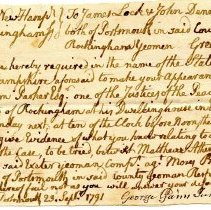 New Hamp
To James Lock & John Dana
Rockingham
both of Portsmouth in said Coun
Rockingham Yeomen Gre
hereby required in the name of the State
Hampshire aforesaid to make your Appearan
Wm Parker Esq. one of the Justices of the Peace
of Rockingham at his Dwellinghouse in
day next, at ten of the Clock before Noon, the
give evidence of what you know relating to a
the Case, to be tried betwixt Matthew Atkins
said Exeter yeoman Compt. agt. Mary B
of Portsmouth in said County yeoman Resp
hereof fail not as you will answer your de
Portsmouth 23. Septr. 1791
George